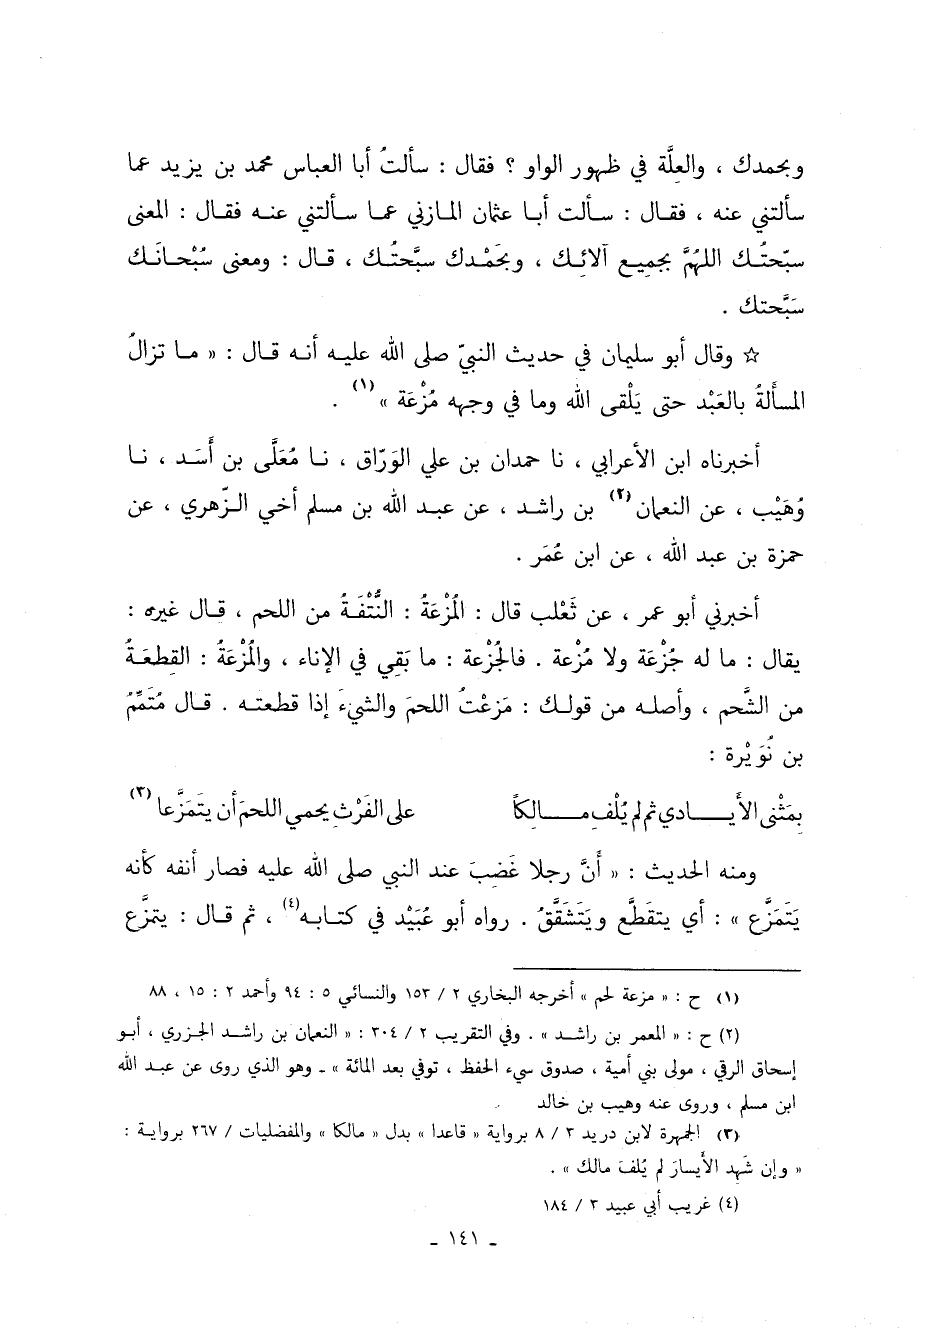 وبحمدك ، والعلَّة في ظهور الواو ؟ فقال : سألتُ أبا العباس محمد بن يزيد عما
سألتني عنه ، فقال : سألت أبا عثمان المازني عما سألتني عنه فقال : المعنى
سبّحتُك اللهُمَّ بجميع آلائك ، وبحَمْدك سبَّحتُك ، قال : ومعنى سُبْحانَك
سَبَّحتك .
☆ وقال أبو سليمان في حديث النبيّ صلى الله عليه أنه قال : « ما تزالُ
المسأَلةُ بالعَبْد حتى يَلْقى الله وما في وجهه مُزْعَة » (١) .
أخبرناه ابن الأعرابي ، نا حمدان بن علي الوَرّاق ، نا مُعَلَّى بن أَسَد ، نا
وُهَيْب ، عن النعمان (٢) بن راشد ، عن عبد الله بن مسلم أخي الزّهري ، عن
حمزة بن عبد الله ، عن ابن عُمَر .
أخبرني أبو عمر ، عن ثَعْلب قال : المُزْعَةُ : النُّتْفَةُ من اللحم ، قال غيره :
يقال : ما له جُزْعَة ولا مُزْعة . فالجُزْعة : ما بَقِي في الإناء ، والمُزْعَةُ : القطعَةُ
من الشَّحم ، وأصله من قولك : مَزعْتُ اللحمَ والشيءَ إذا قطعته . قال مُتَمِّمُ
بن نُوَيْرة :
بمَثْنى الأَيادي ثم لم يُلْفِ مالكاً على الفَرْث يحمي اللحمَ أن يتَمَزَّعا (٣)
ومنه الحديث : « أَنَّ رجلا غَضِبَ عند النبي صلى الله عليه فصار أنفه كأنه
يَتَمَزَّع » : أي يتقطَّع ويتَشَقَّقُ . رواه أبو عُبَيْد في كتابه (٤) ، ثم قال : يتمزَّع
(١) ح : « مزعة لحم » أخرجه البخاري ٢ / ١٥٣ والنسائي ٥ : ٩٤ وأحمد ٢ : ١٥ ، ٨٨
(٢) ح : « المعمر بن راشد » . وفي التقريب ٢ / ٣٠٤ : « النعمان بن راشد الجزري ، أبو
إسحاق الرقي ، مولى بني أمية ، صدوق سيء الحفظ ، توفي بعد المائة » ـ وهو الذي روى عن عبد الله
ابن مسلم ، وروى عنه وهيب بن خالد
(٣) الجمهرة لابن دريد ٣ / ٨ برواية « قاعدا » بدل « مالكا » والمفضليات / ٢٦٧ برواية :
« وإن شَهِد الأَيسارَ لم يُلفَ مالك » .
(٤) غريب أبي عبيد ٣ / ١٨٤
ـ ١٤١ ـ